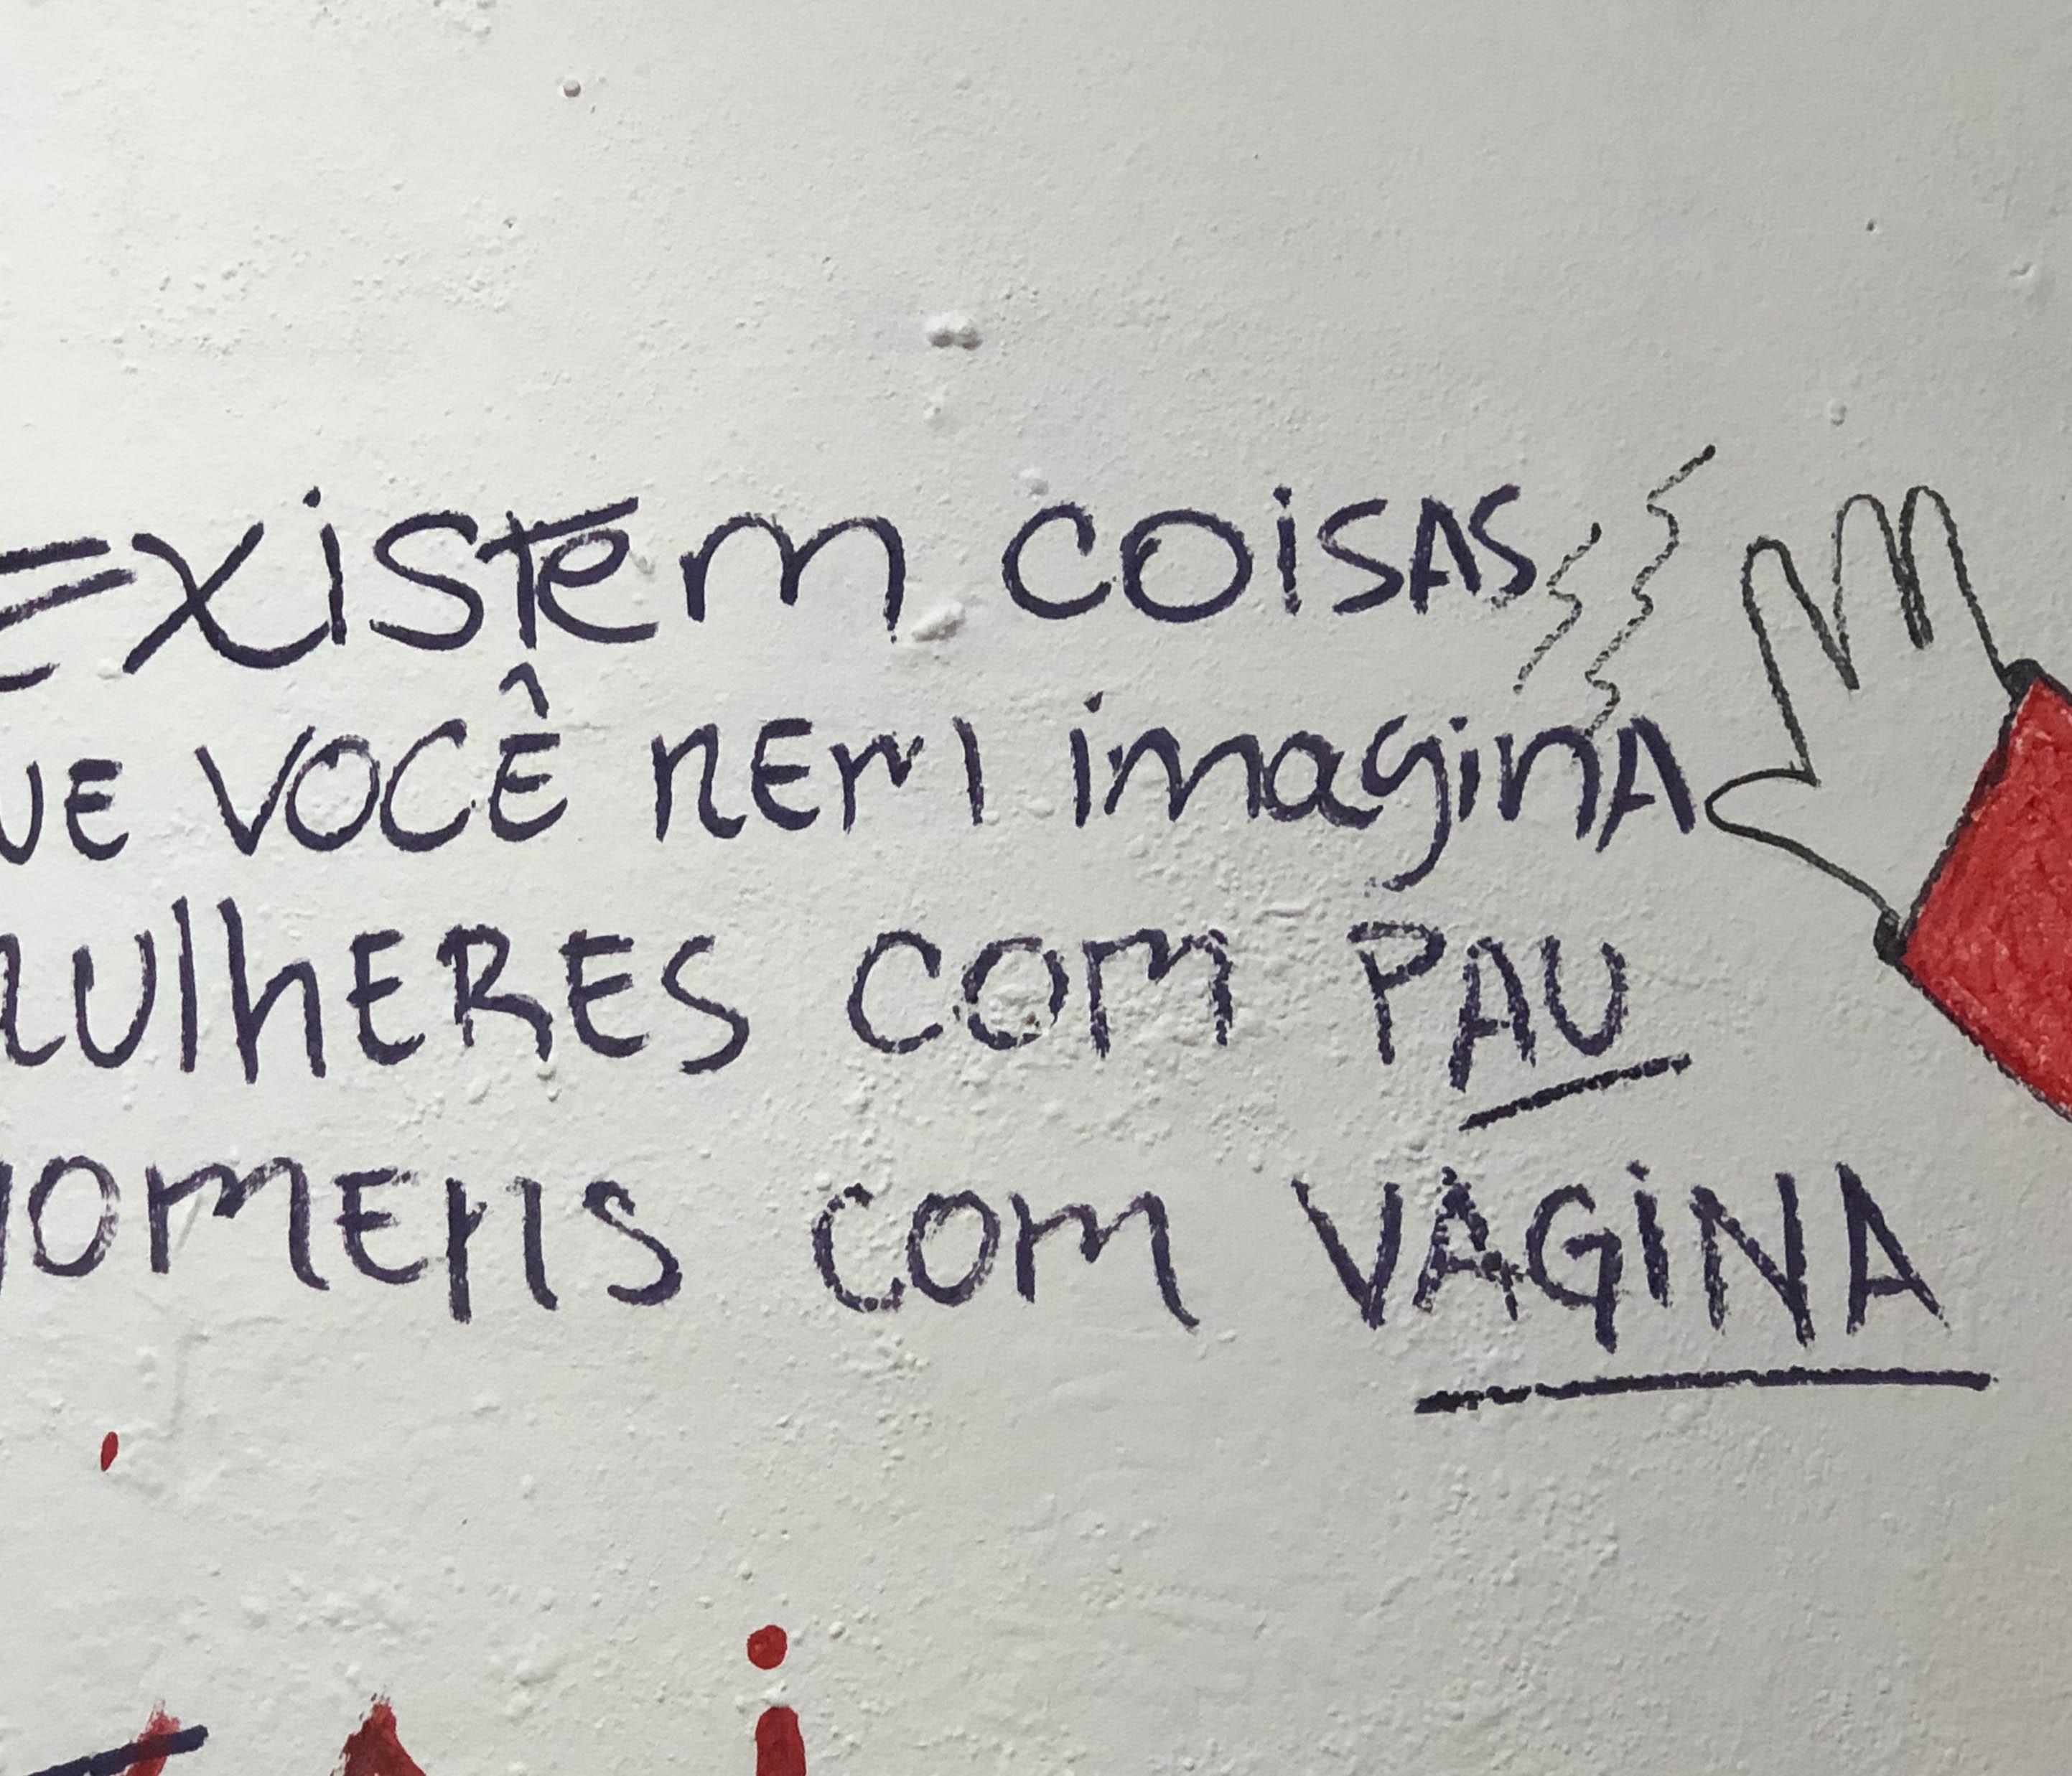 EXISTEM COISAS
UE VOCÊ NEM IMAGINA
ULHERES COM PAU
OMENS COM VAGINA